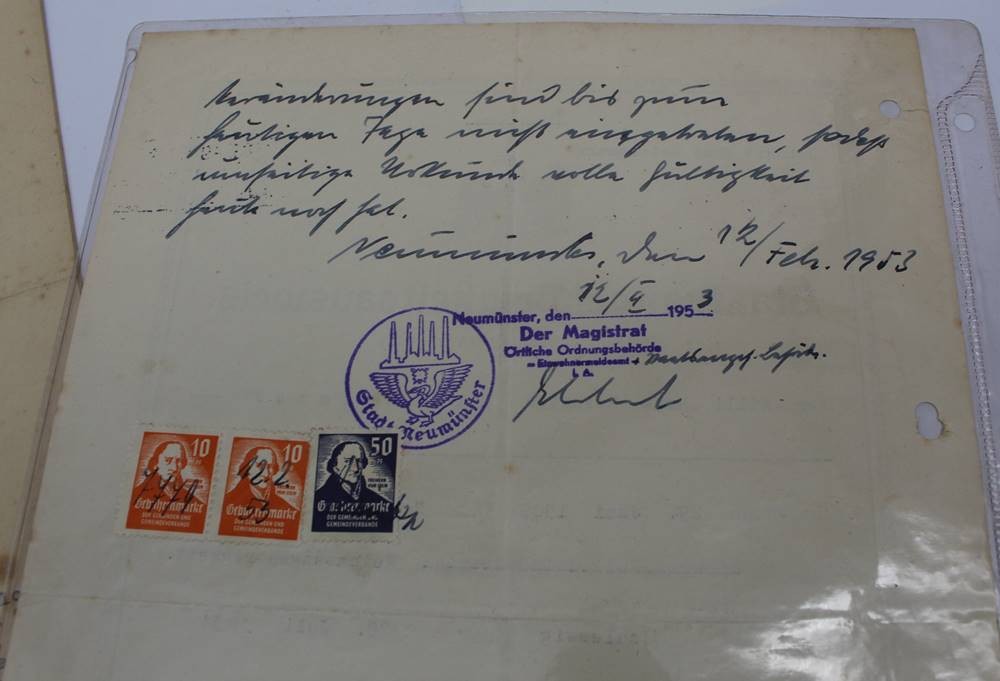 Veränderungen sind bis zum
heutigen Tage nicht eingetreten, sodaß
umseitige Urkunde volle Gültigkeit
heute noch hat.
Neumünster, den 12/Feb. 1953
Neumünster, den 12/II 1953
Der Magistrat
Örtliche Ordnungsbehörde
- Einwohnermeldeamt +
I. A.
Stadt Neumünster
10
FREIHERR
VOM STEIN
Gebührenmarke
DER GEMEINDEN UND
GEMEINDEVERBÄNDE
10
12.2.
53
FREIHERR
VOM STEIN
Gebührenmarke
DER GEMEINDEN UND
GEMEINDEVERBÄNDE
50
FREIHERR
VOM STEIN
Gebührenmarke
DER GEMEINDEN UND
GEMEINDEVERBÄNDE